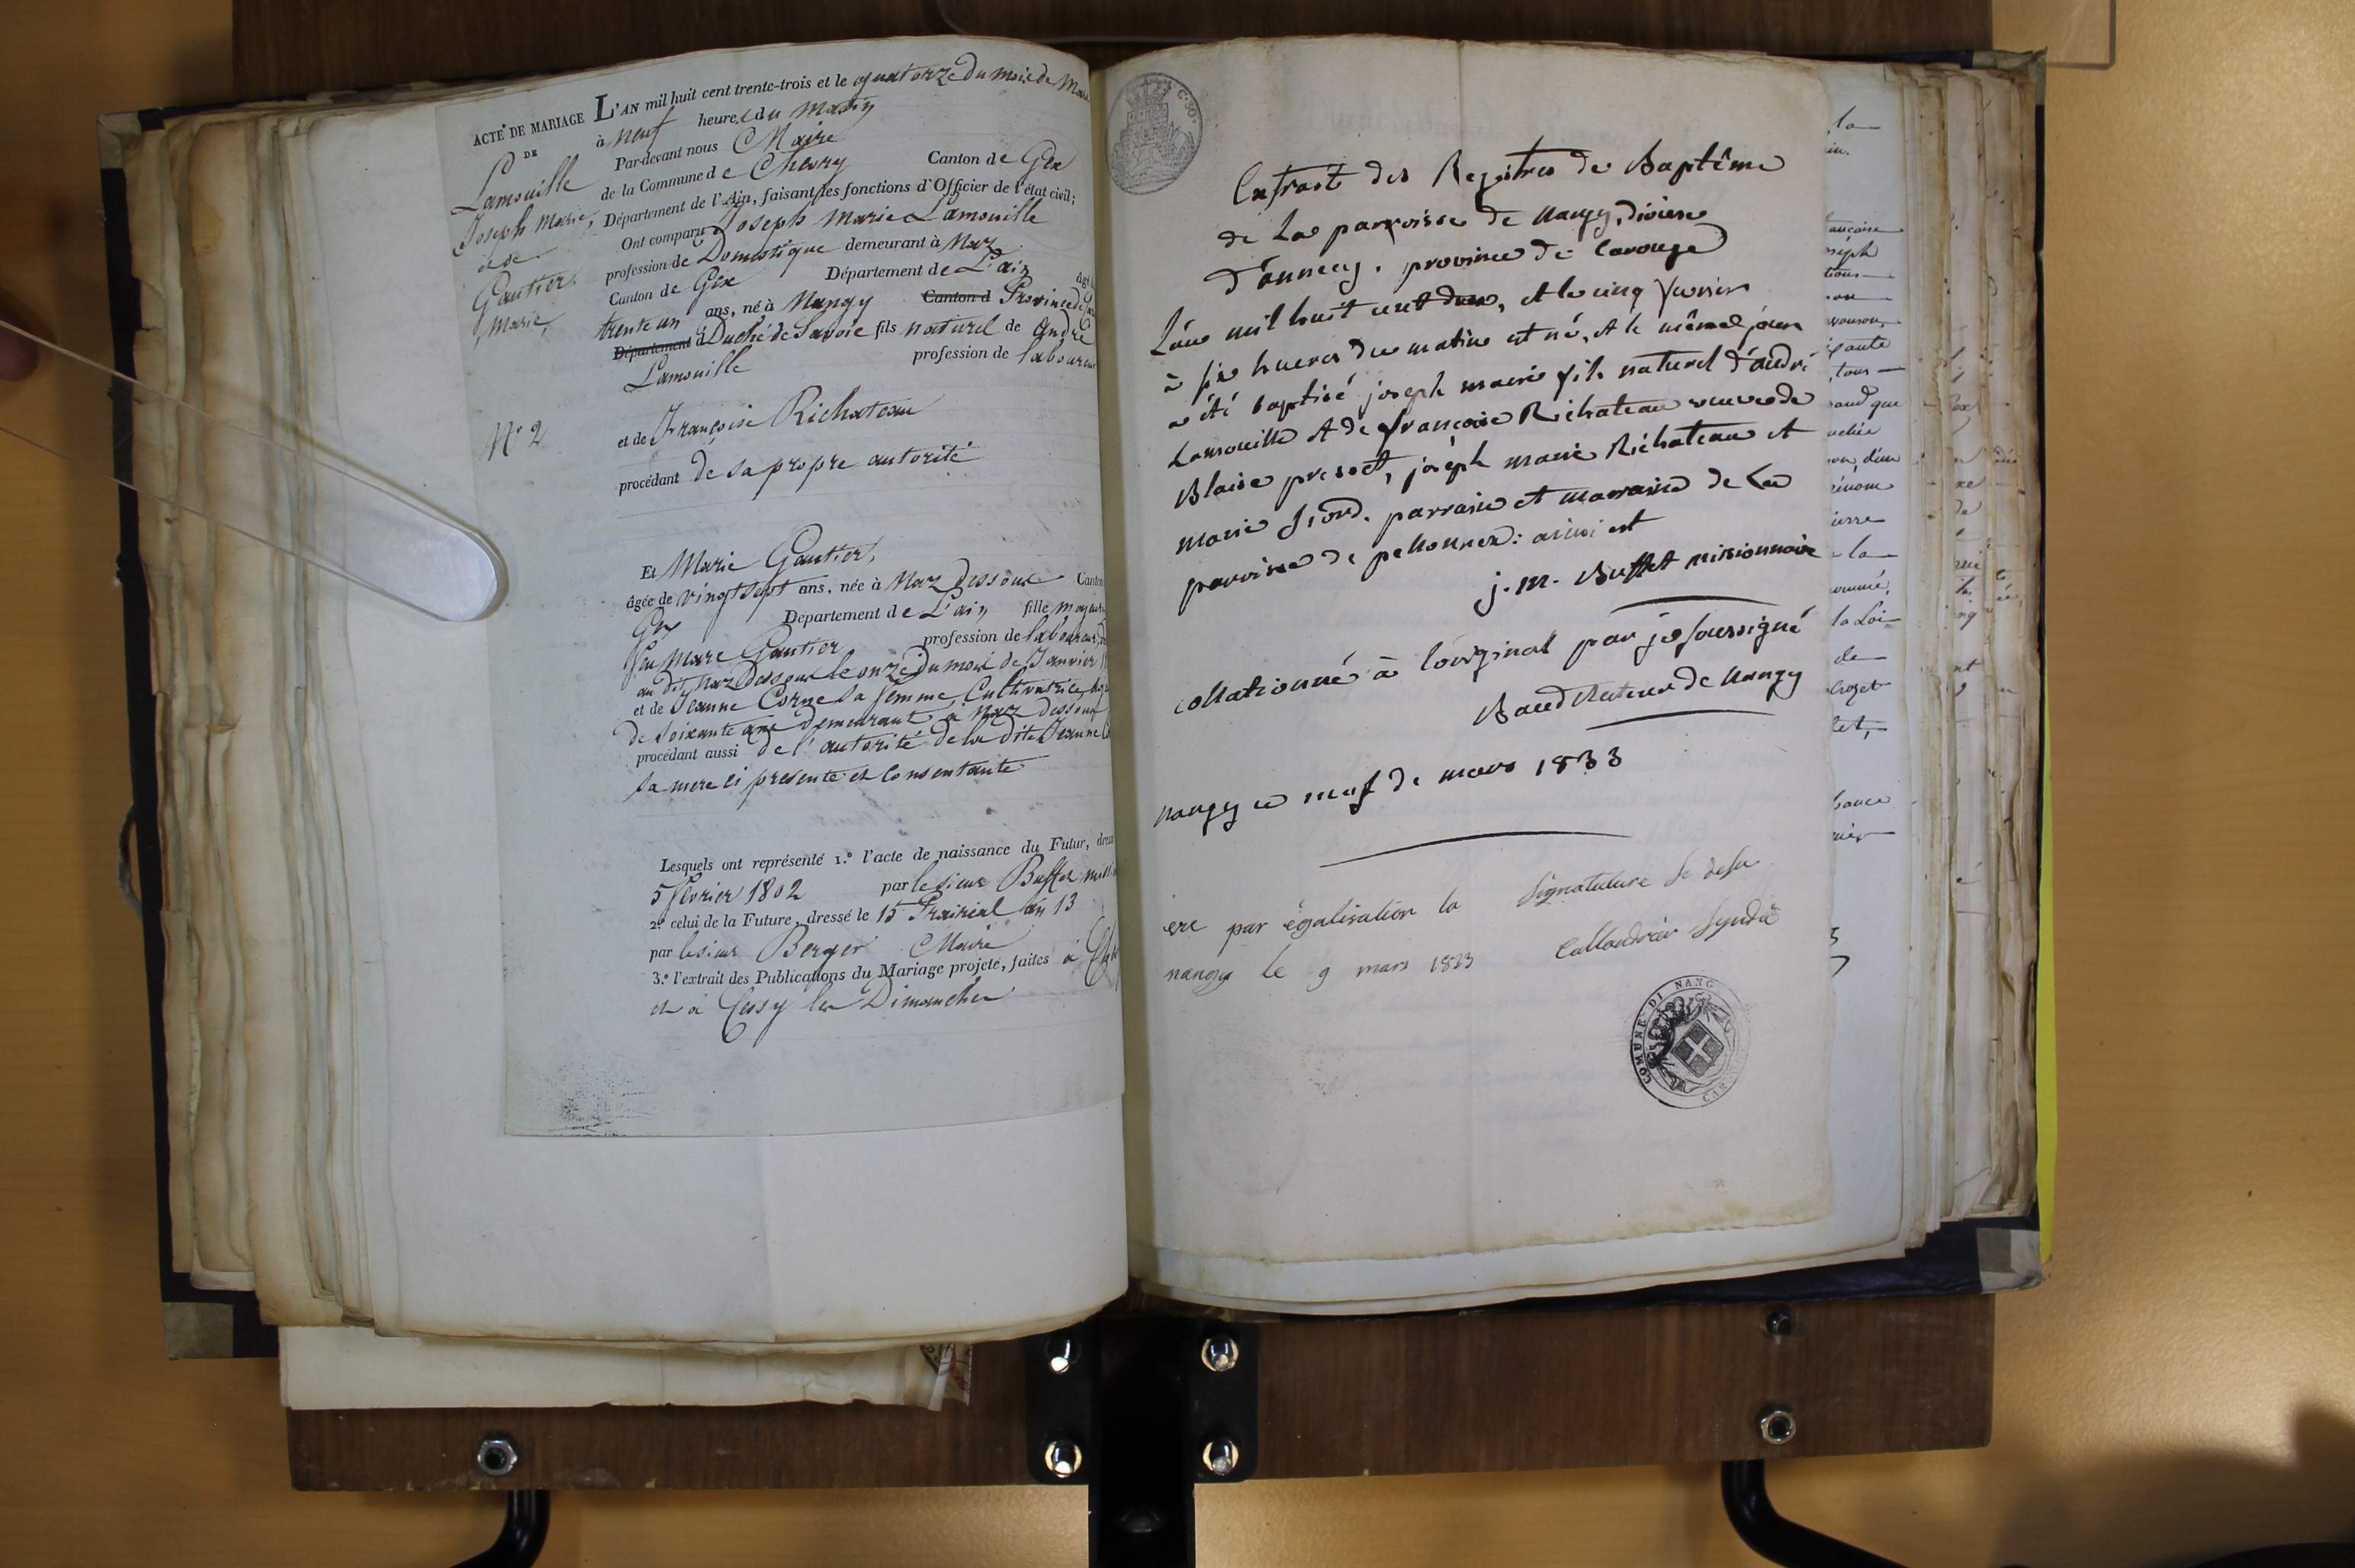 ACTE DE MARIAGE L'AN mil huit cent trente-trois et le quatorze du mois de
DE
à neuf heures du matin
Par-devant nous Maire
de la Commune de Chevry Canton de Gex
Département de l'Ain, faisant les fonctions d'Officier de l'état civil;
Lamouille
Joseph Marie,
et de
Gautier
Marie,
N° 2
Ont comparu Joseph Marie Lamouille
profession de Domestique demeurant à Naz
Canton de Gex Département de L'ain
trente un ans, né à Nangy Canton d Province de
Département d Duché de Savoie fils naturel de André
Lamouille profession de laboureur
et de Françoise Richateau
procédant de sa propre autorité
Et Marie Gautier,
âgée de vingt sept ans, née à Naz dessous
Gex Département de L'ain fille
feu Marc Gautier profession de laboureur
au dit Naz Dessous le onze du mois de Janvier
et de Jeanne Corne sa femme Cultivatrice
de soixante ans demeurant à Naz dessous
procédant aussi de l'autorité de la dite Jeanne
sa mere ci presente et Consentante
Lesquels ont représenté 1.° l'acte de naissance du Futur,
5 fevrier 1802 par le sieur Buffet
2.° celui de la Future, dressé le 15 Prairial an 13
par le sieur Berger Maire
3.° l'extrait des Publications du Mariage projeté, faites à
et à Cessy les Dimanches
C. 30
Extrait des Registres de Baptême
de La parroisse de Nangy, diocese
d'annecy. province de Carouge
L'an mil huit cent deux, et le cinq fevrier
à six heures du matin est né, et le même jour
a été baptisé joseph marie fils naturel d'andré
Lamouille et de françoise Richateau veuve de
Blaise presset, joseph marie Richateau et
marie parrain et marraine de La
paroisse de pellionnex: ainsi est
j. m. Buffet missionnaire
collationné à l'original par je soussigné
Baud Recteur de Nangy
nangy ce neuf de mars 1833
par égalisation la signature
nangy le 9 mars 1833 Syndic
COMUNE DI NANG